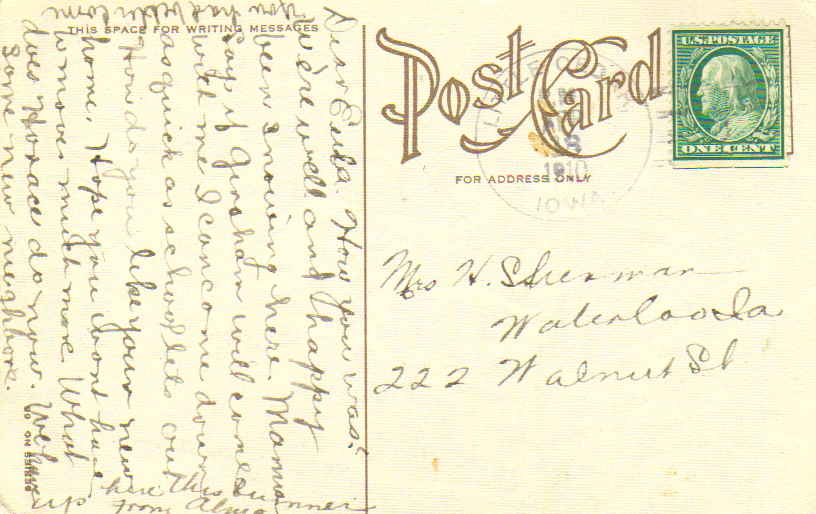 THIS SPACE FOR WRITING MESSAGES
Post Card
FOR ADDRESS ONLY
U.S. POSTAGE
ONE CENT
1910
IOWA
Mrs H. Sherman
Waterloo Ia
222 Walnut St
Dear Eula. How you was?
We're well and happy
been snowing here. Mama
says if Gresham will come
with me I can come down
as quick as school lets out
How do you like your new
home. Hope you wont have
to move much more. What
does Horace do now. We have
some new neighbors.
You had better come
up here this summer
From Alma
SERIES NO.